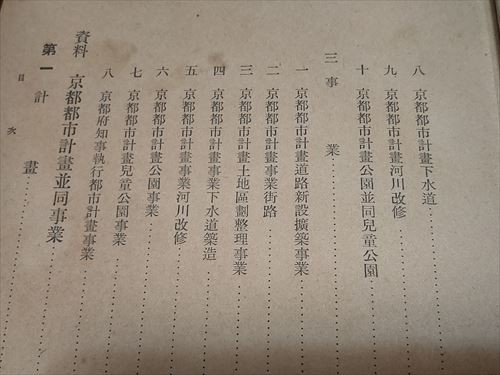 八 京都都市計畫下水道
九 京都都市計畫河川改修
十 京都都市計畫公園並同兒童公園
三 事業
一 京都都市計畫道路新設擴築事業
二 京都都市計畫事業街路
三 京都都市計畫土地區劃整理事業
四 京都都市計畫事業下水道築造
五 京都都市計畫事業河川改修
六 京都都市計畫公園事業
七 京都都市計畫兒童公園事業
八 京都府知事執行都市計畫事業
資料 京都都市計畫並同事業
第一 計畫
目次